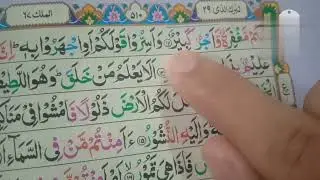 تبرك الذى ٢٩ ٥١٠ الملك ٦٧
مَّغْفِرَةٌ وَّاَجْرٌ كَبِيْرٌ وَاَسِرُّوْا قَوْلَكُمْ اَوِ اجْهَرُوْا بِهٖ
عَلِيْمٌ اَلَا يَعْلَمُ مَنْ خَلَقَ وَهُوَ اللَّطِيْفُ
لَكُمُ الْاَرْضَ ذَلُوْلًا فَامْشُوْا فِيْ مَنَاكِبِهَا
وَاِلَيْهِ النُّشُوْرُ ءَاَمِنْتُمْ مَّنْ فِي السَّمَآءِ
فَاِذَا هِيَ تَمُوْرُ